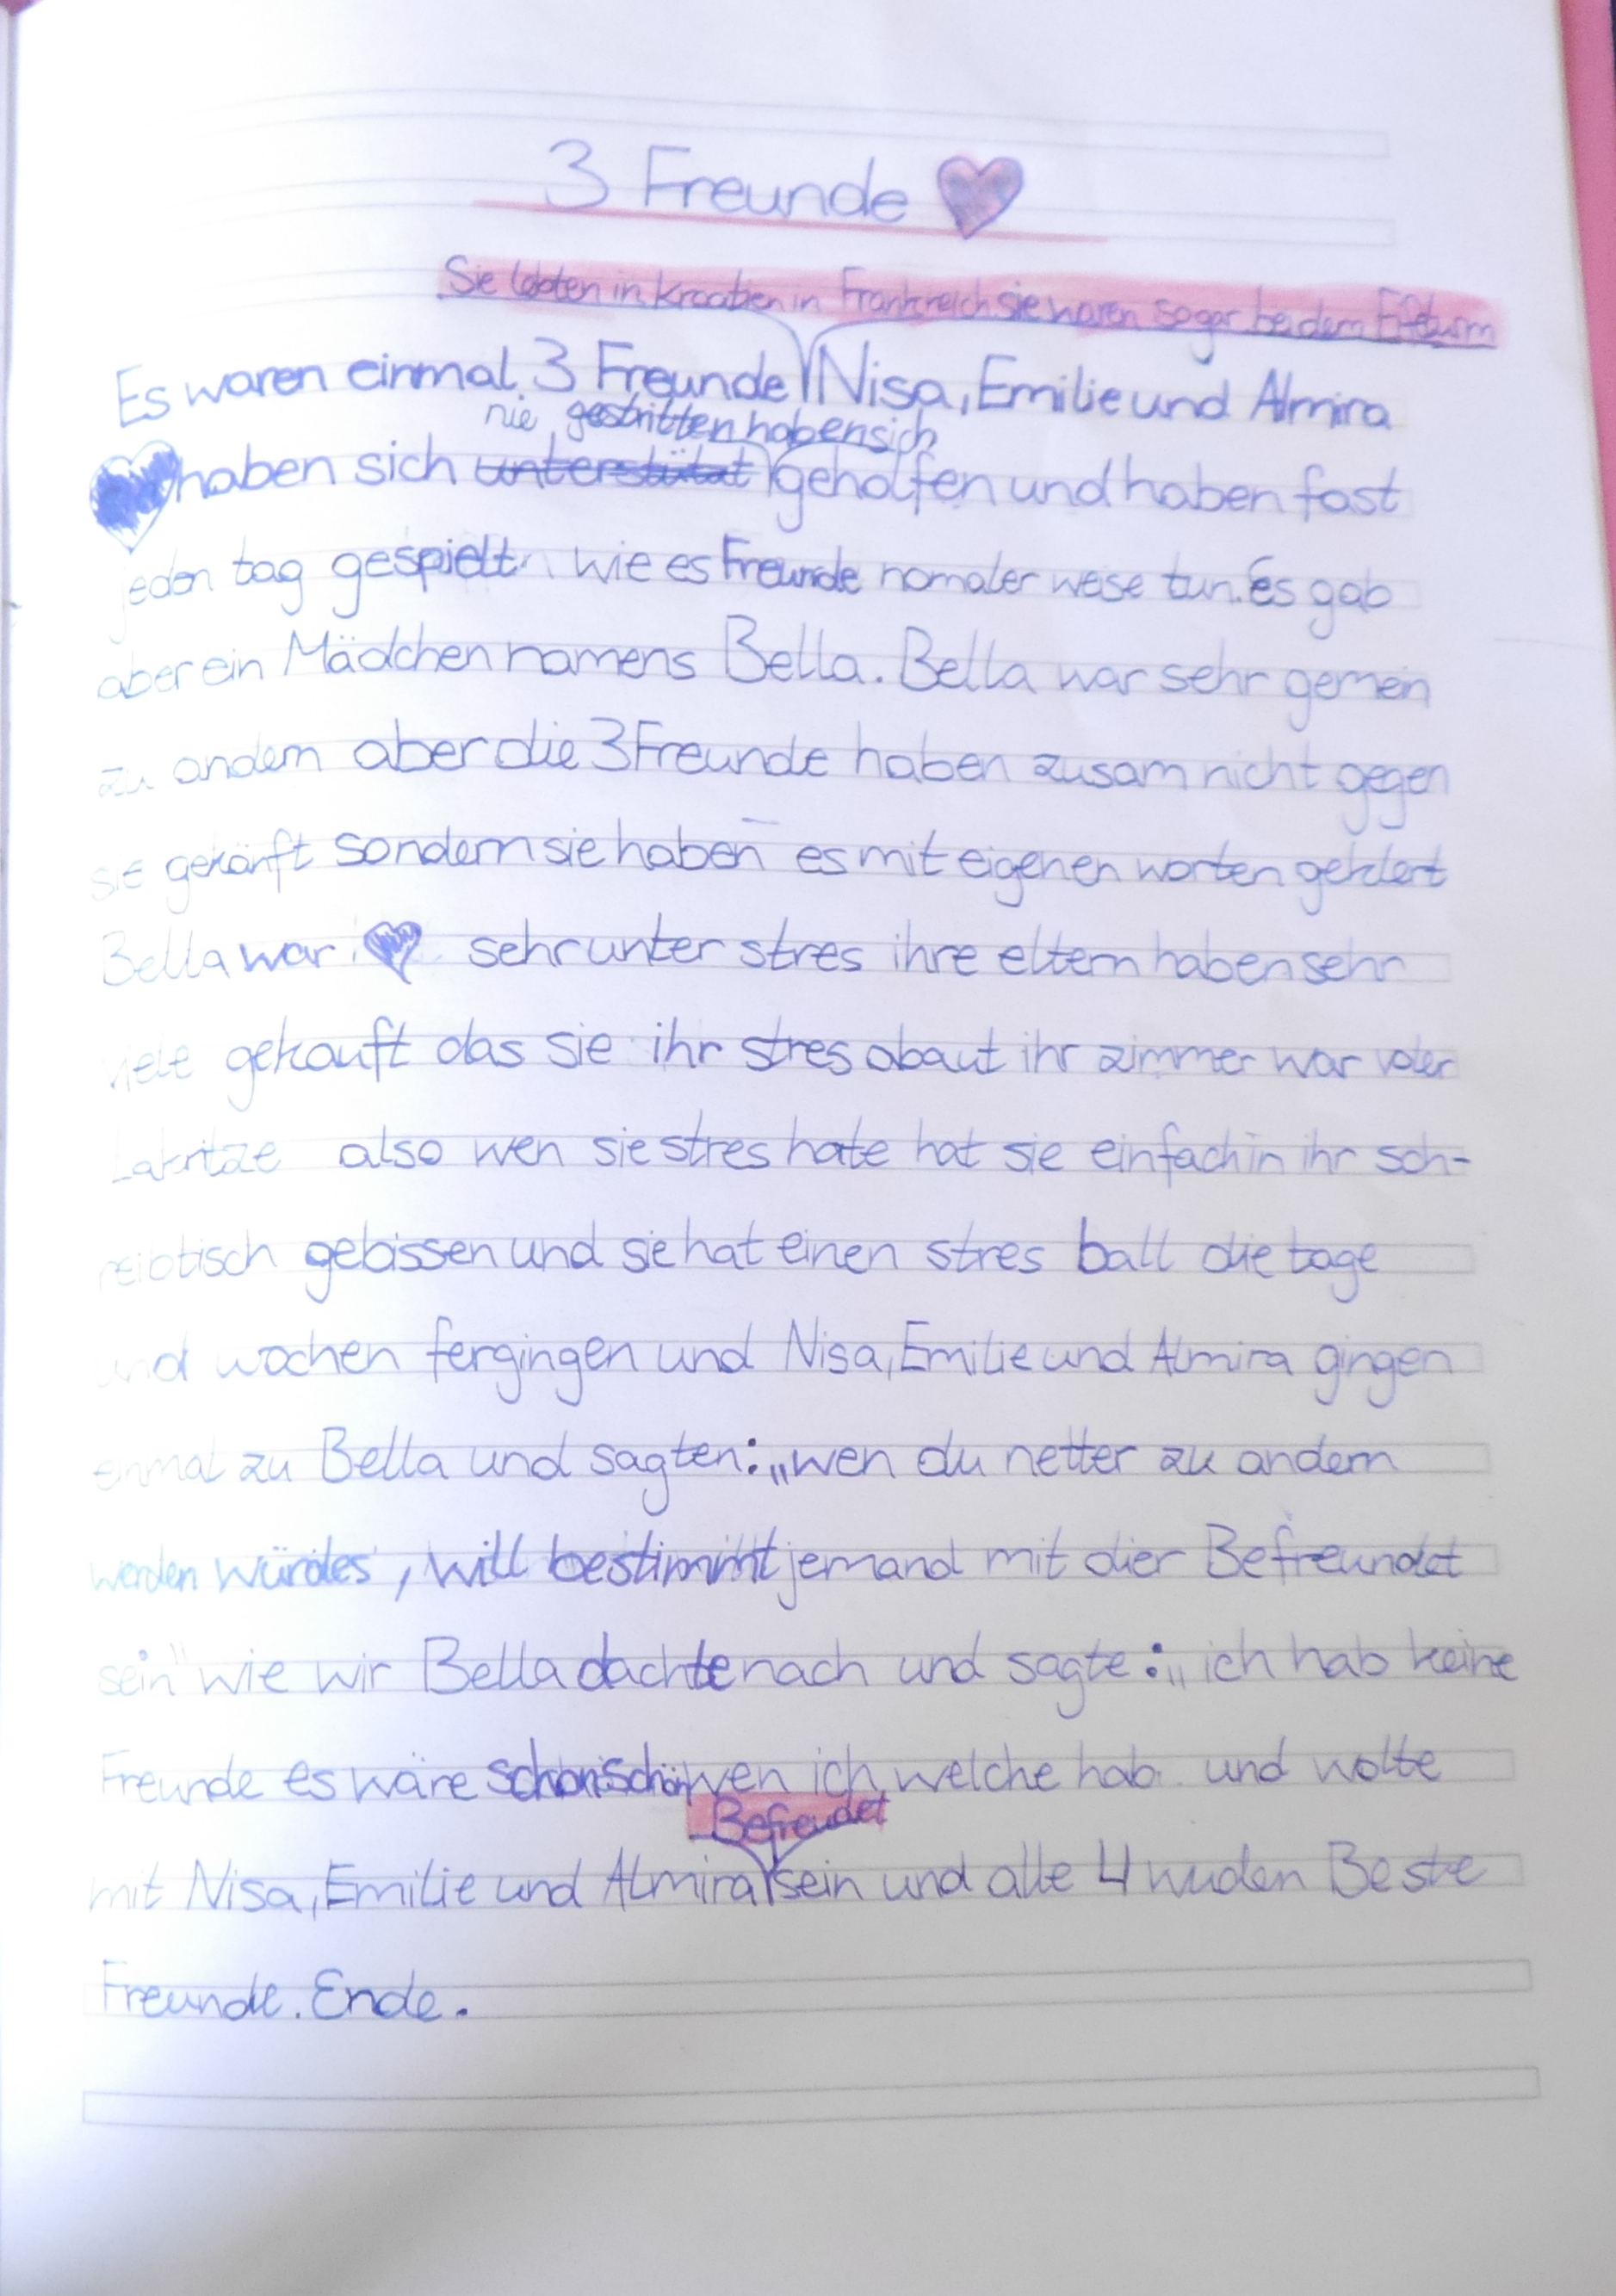 3 Freunde
Sie lebten in kroatien in Frankreich sie waren sogar bei dem Eifelturm
Es waren einmal 3 Freunde Nisa, Emilie und Almira
nie gestritten haben sich
haben sich unterstützt geholfen und haben fast
jeden tag gespielt wie es Freunde nomaler weise tun. Es gab
aber ein Mädchen namens Bella. Bella war sehr gemein
zu andern aber die 3 Freunde haben zusam nicht gegen
sie gekänft sondern sie haben es mit eigenen worten geklert
Bella war sehr unter stres ihre eltern haben sehr
viele gekauft das sie ihr stres abaut ihr zimmer war voler
Lakritze also wen sie stres hate hat sie einfach in ihr sch-
reibtisch gebissen und sie hat einen stres ball die tage
und wochen fergingen und Nisa, Emilie und Almira gingen
einmal zu Bella und sagten: „wen du netter zu andern
werden würdes, will bestimmt jemand mit dier Befreundet
sein" wie wir Bella dachte nach und sagte: „ich hab keine
Freunde es wäre schön wen ich welche hab und wolte
Befreudet
mit Nisa, Emilie und Almira sein und alle 4 wuden Beste
Freunde. Ende.